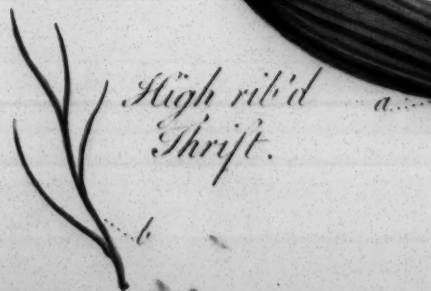 High rib'd
Thrift.
a
b